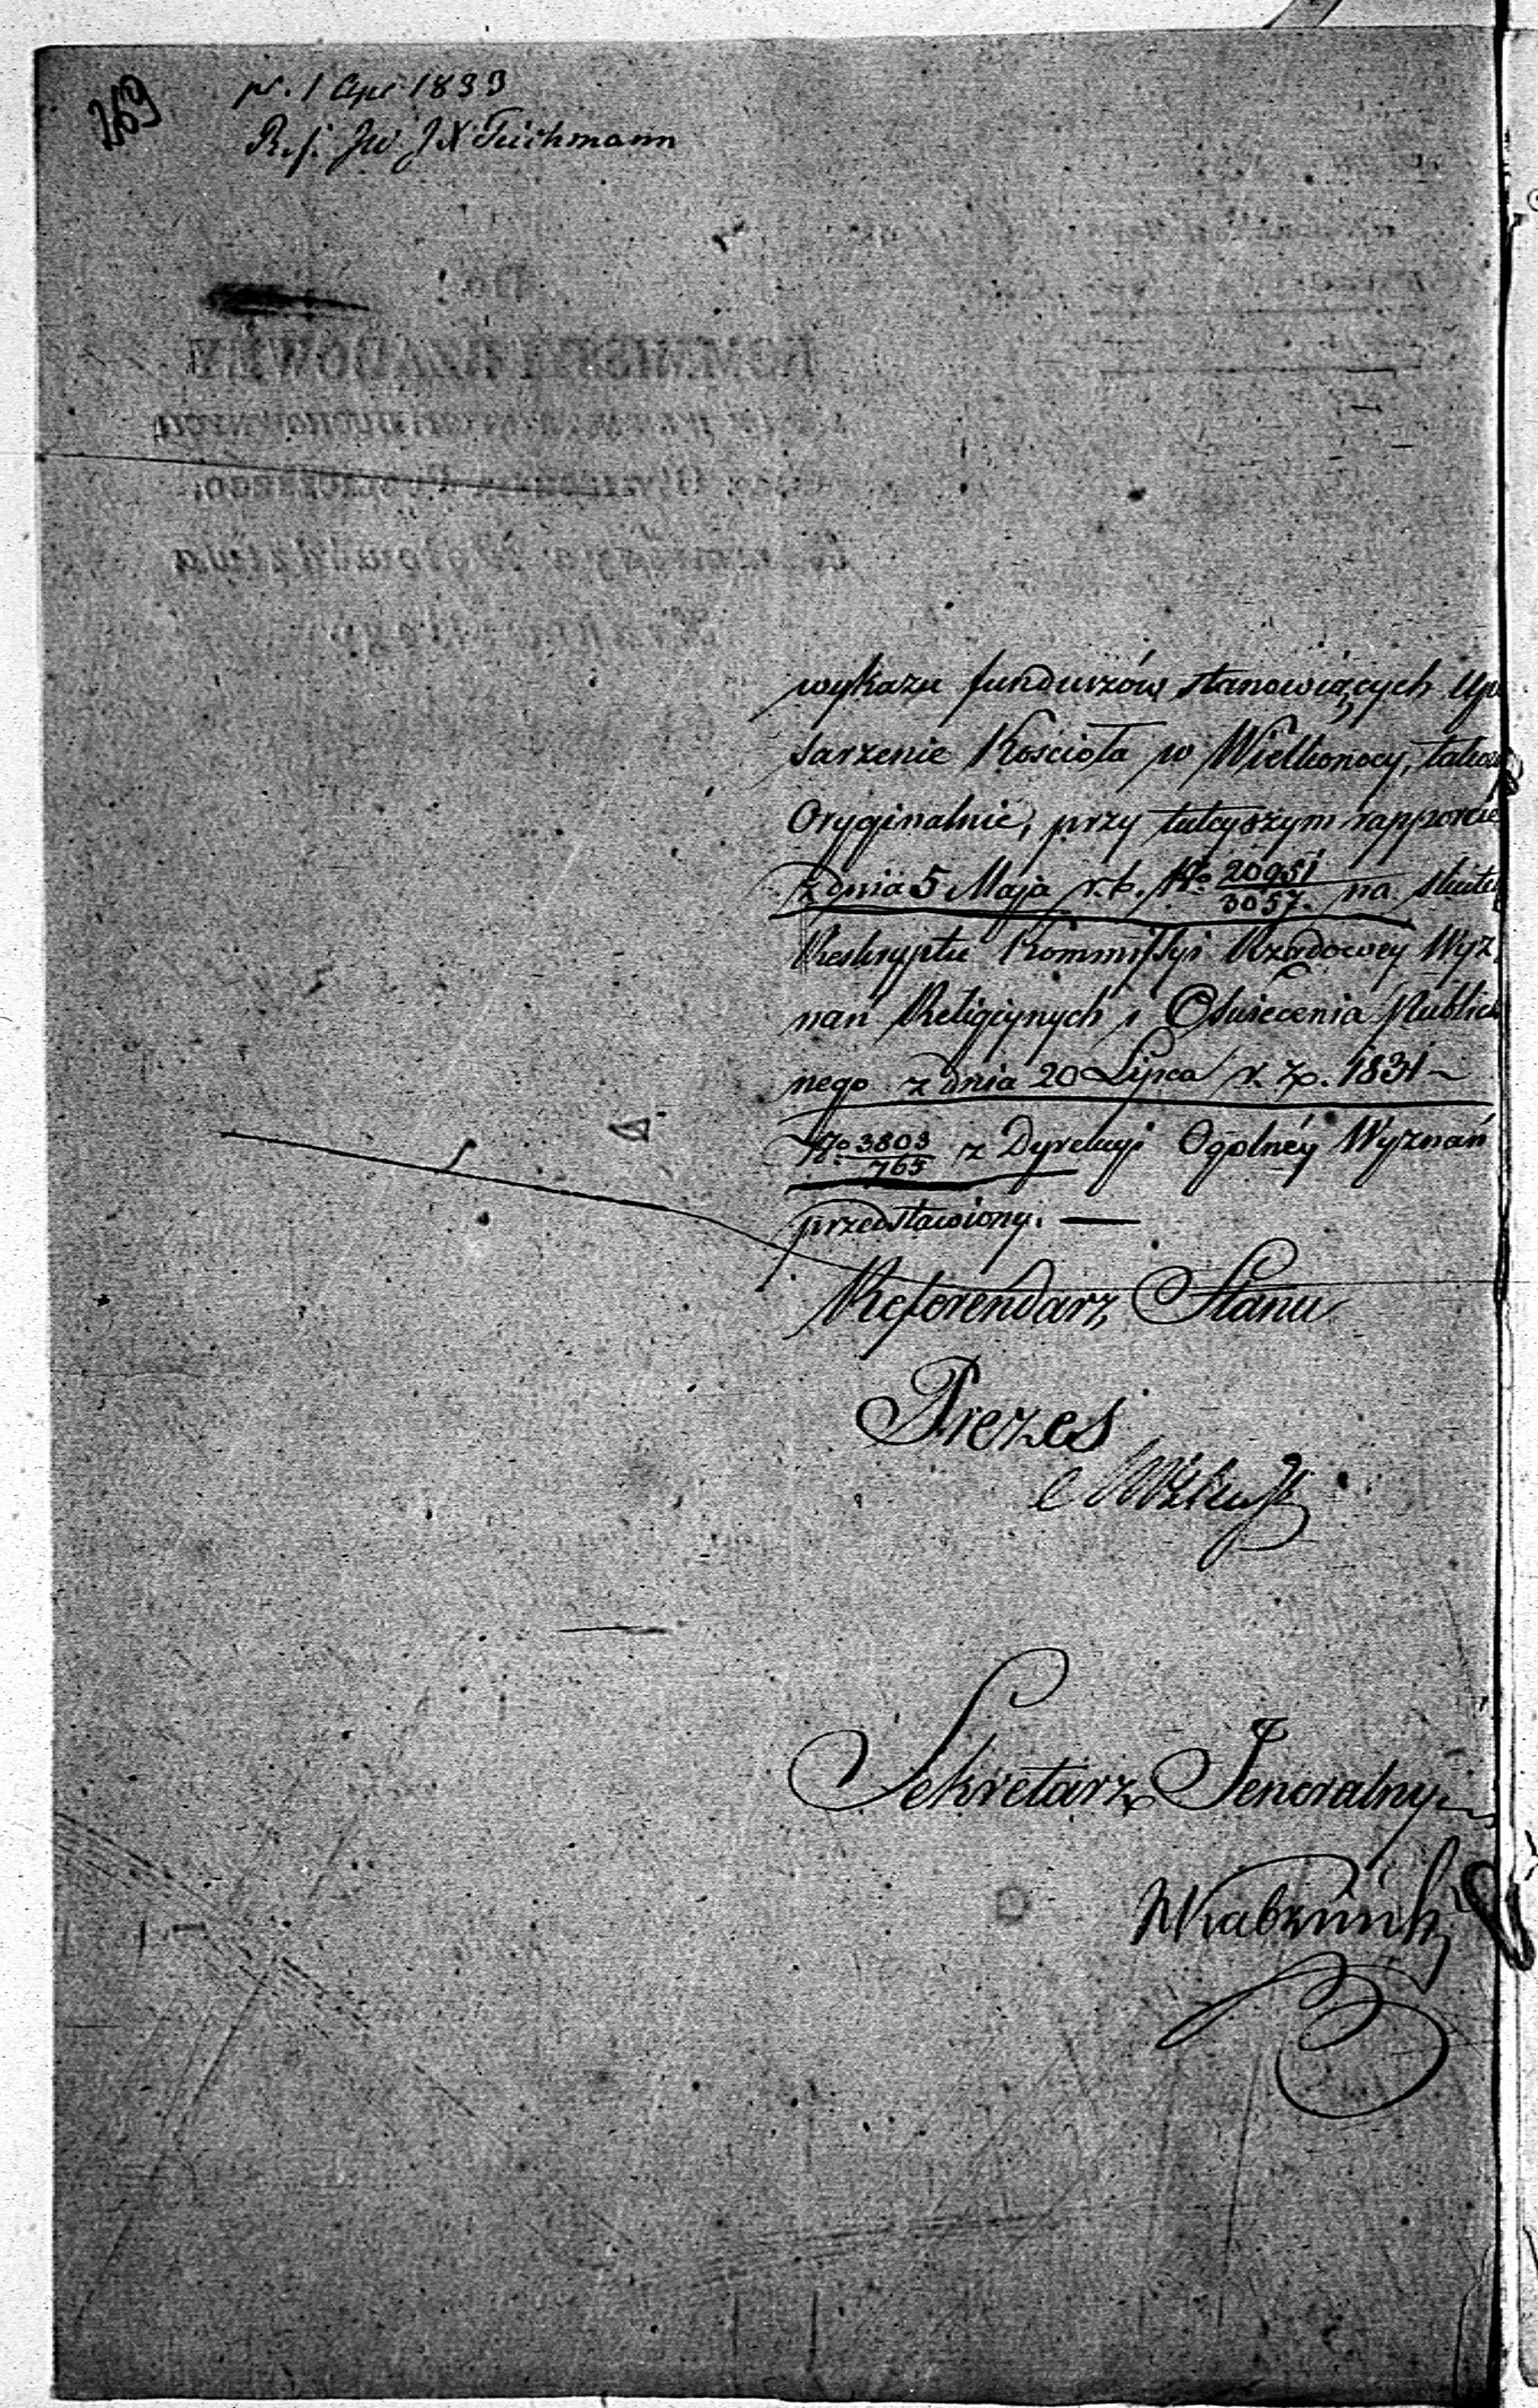 269
pr. 1 Apr 1833
Ref. JW J X Teichmann
wykazu funduszów stanowiących upo
sarzenie Kościoła w Wielkonocy, takow
Oryginalnie, przy tuteyszym rapporcie
z dnia 5 Maja r. b. No 20951/3057. na skutek
Reskryptu Kommissyi Rządowey Wyz
nań Religiynych i Oświecenia Publicz
nego z dnia 20 Lipca r. z. 1831 ~
No 3803/765 z Dyrekcyi Ogolnéy Wyznań
przedstawiony. —
Referendarz Stanu
Prezes
Sekretarz Jeneralny